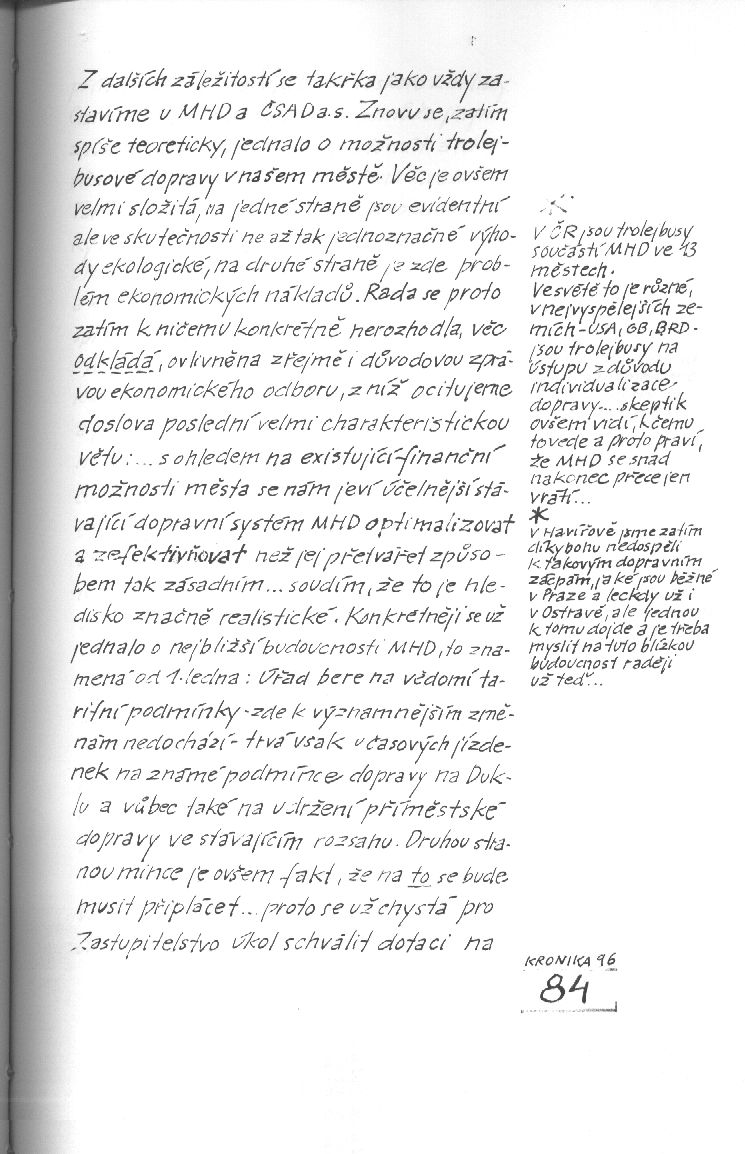 Z dalších záležitostí se takřka jako vždy za-
stavíme u MHD a ČSAD a.s. Znovu se, zatím
spíše teoreticky, jednalo o možnosti trolej-
busové dopravy v našem městě. Věc je ovšem
velmi složitá, na jedné straně jsou evidentní
ale ve skutečnosti ne až tak jednoznačné výho-
dy ekologické, na druhé straně je zde prob-
lém ekonomických nákladů. Rada se proto
zatím k ničemu konkrétně nerozhodla, věc
odkládá, ovlivněna zřejmě i důvodovou zprá-
vou ekonomického odboru, z níž ocitujeme
doslova poslední velmi charakteristickou
větu: ... s ohledem na existující finanční
možnosti města se nám jeví účelnější stá-
vající dopravní systém MHD optimalizovat
a zefektivňovat než jej přetvářet způso-
bem tak zásadním... soudím, že to je hle-
disko značně realistické. Konkrétněji se už
jednalo o nejbližší budoucnosti MHD, to zna-
mená od 1. ledna: Úřad bere na vědomí ta-
rifní podmínky - zde k významnějším změ-
nám nedochází - trvá však u časových jízde-
nek na známé podmínce dopravy na Duk-
lu a vůbec také na udržení příměstské
dopravy ve stávajícím rozsahu. Druhou stra-
nou mince je ovšem fakt, že na to se bude
musit připlácet... proto se už chystá pro
Zastupitelstvo úkol schválit dotaci na
V ČR jsou trolejbusy
součástí MHD ve 13
městech.
Ve světě to je různé,
v nejvyspělejších ze-
mích - USA, GB, BRD -
jsou trolejbusy na
ústupu z důvodu
individualizace
dopravy... skeptik
ovšem vidí, k čemu
to vede a proto praví,
že MHD se snad
nakonec přece jen
vrátí...
*
V Havířově jsme zatím
díky bohu nedospěli
k takovým dopravním
zácpám, jaké jsou běžné
v Praze a leckdy už i
v Ostravě, ale jednou
k tomu dojde a je třeba
myslit na tuto blízkou
budoucnost raději
už teď...
KRONIKA 96
84